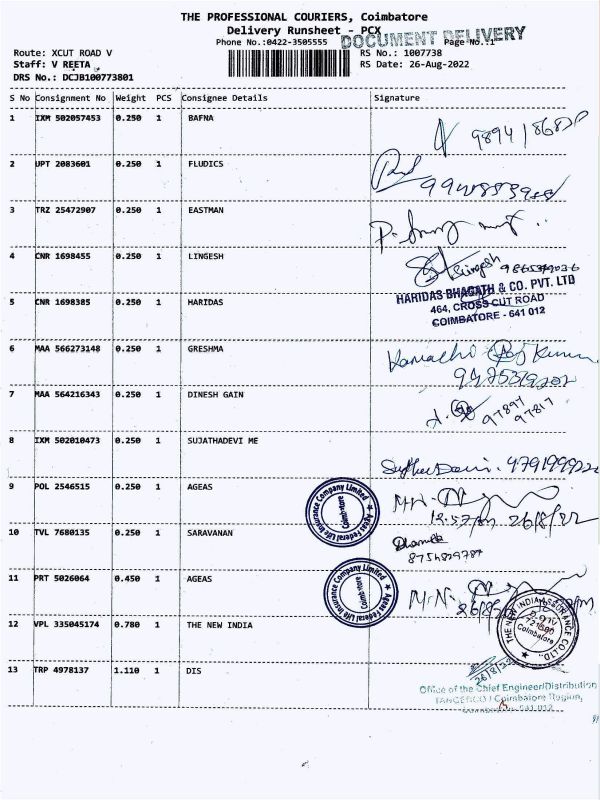 THE PROFESSIONAL COURIERS, Coimbatore
Delivery Runsheet - PCX
DOCUMENT DELIVERY
Phone No.:0422-3505555 Page No.:1
Route: XCUT ROAD V RS No.: 1007738
Staff: V REETA RS Date: 26-Aug-2022
DRS No.: DCJB100773801
S No Consignment No Weight PCS Consignee Details Signature
1 IXM 502057453 0.250 1 BAFNA
2 UPT 2083601 0.250 1 FLUDICS
3 TRZ 25472907 0.250 1 EASTMAN
4 CNR 1698455 0.250 1 LINGESH Lingesh
5 CNR 1698385 0.250 1 HARIDAS
HARIDAS BHAGATH & CO. PVT. LTD
464, CROSS CUT ROAD
COIMBATORE - 641 012
6 MAA 566273148 0.250 1 GRESHMA
7 MAA 564216343 0.250 1 DINESH GAIN
97897
97817
8 IXM 502010473 0.250 1 SUJATHADEVI ME
9 POL 2546515 0.250 1 AGEAS
Ageas Federal Life Insurance Company Limited
Coimbatore
26/8/22
10 TVL 7680135 0.250 1 SARAVANAN
11 PRT 5026064 0.450 1 AGEAS
Ageas Federal Life Insurance Company Limited
Coimbatore
12 VPL 335045174 0.780 1 THE NEW INDIA
THE NEW INDIA ASSURANCE CO.LTD.
Coimbatore
13 TRP 4978137 1.110 1 DIS
26/8/22
Office of the Chief Engineer/Distribution
TANGEDCO / Coimbatore Region,